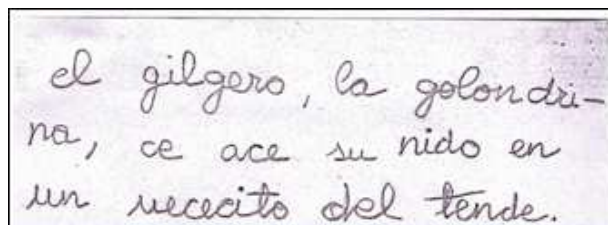 el gilgero, la golondri-
na, ce ace su nido en
un uececito del tende.